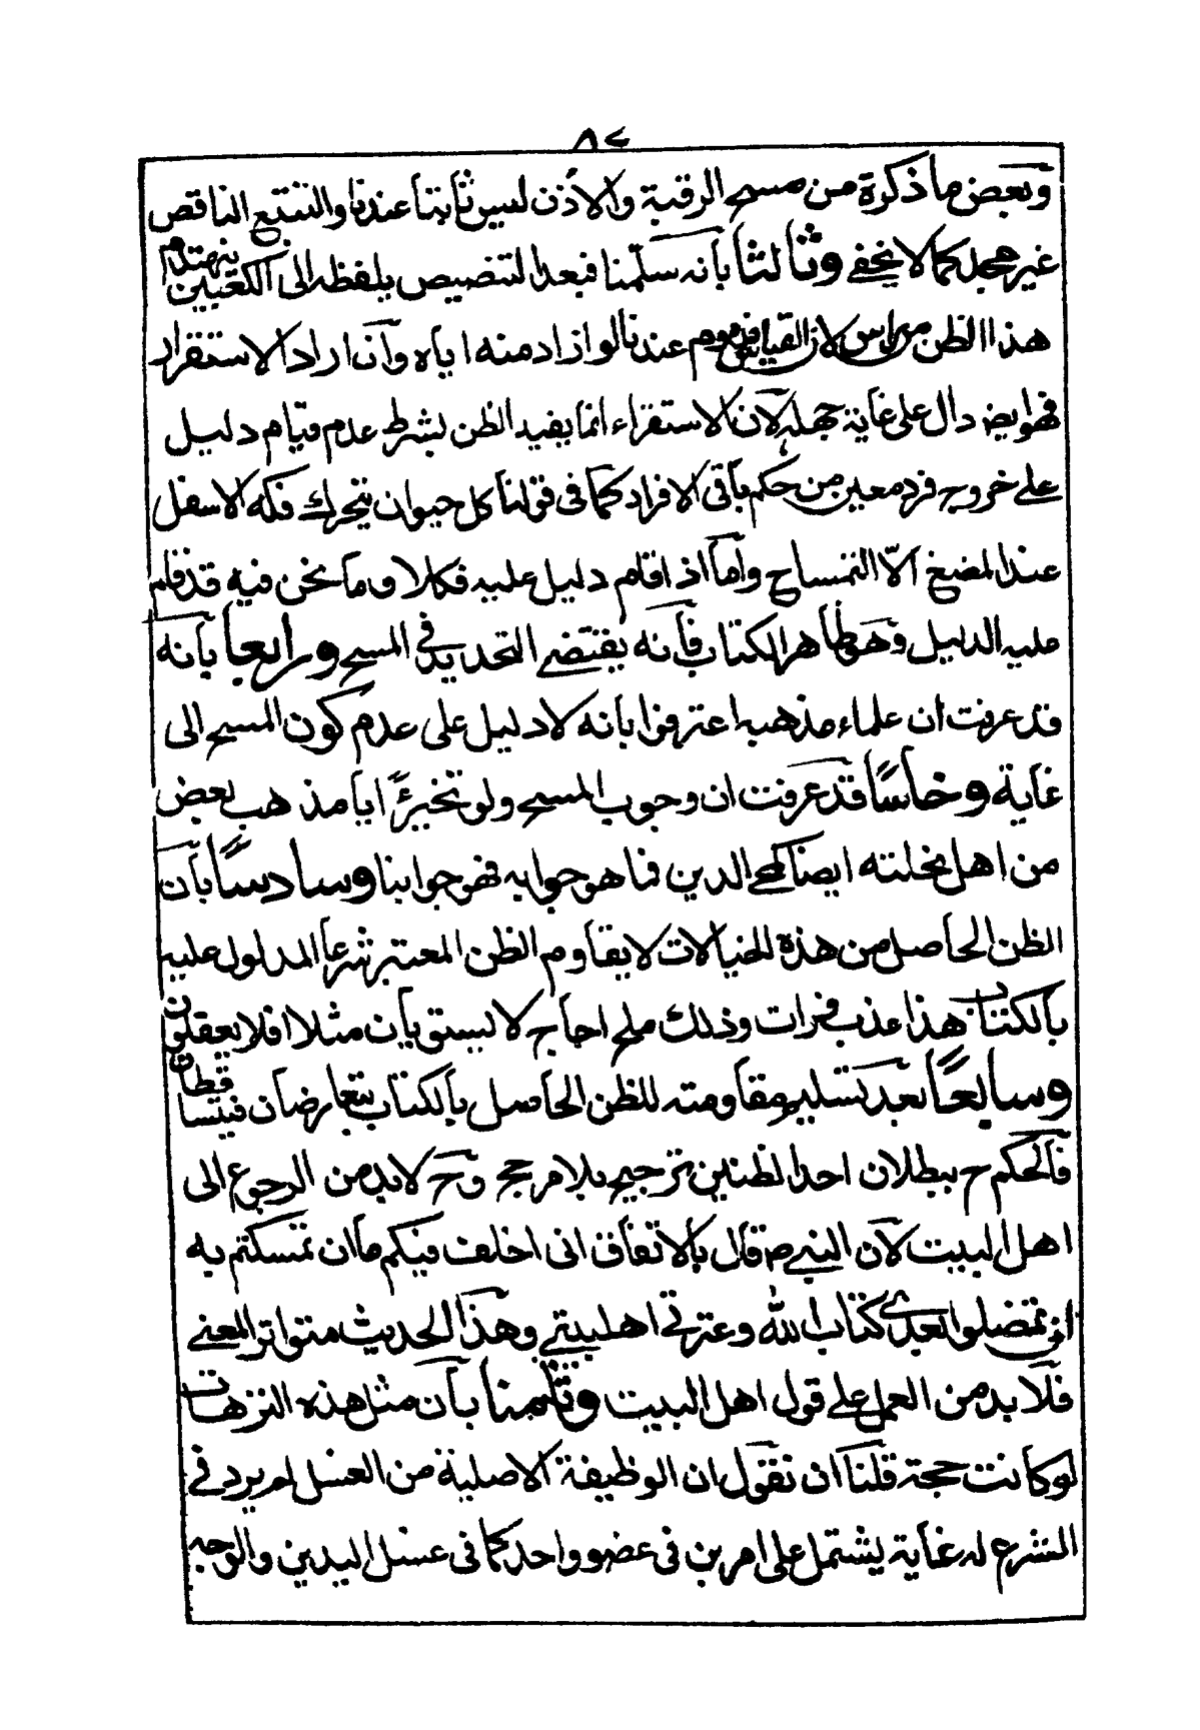 ٨٢
وبعض ما ذكرة من مسح الرقبة والأذن ليس ثابتا عندنا والتتبع الناقص
غير مجد كما لا يخفى وثالثا بانه سلّمنا فبعد التنصيص بلفظه الى الكعبين ينهدم
هذا الظن من راس لان القياس مذموم عندنا لو ازاد منه اياه وان اراد الاستقرار
فهو ايض دال على غاية جهله لان الاستقراء انما يفيد الظن بشرط عدم قيام دليل
على خروج فرد معين من حكم باقى الافراد كما فى قولنا كل حيوان يتحرك فكه الاسفل
عند المضغ الّا التمساح واما اذ اقام دليل عليه فكلا وما نحن فيه قد قام
عليه الدليل وهو ظاهر الكتاب فانه يقتضى التحديد فى المسح ورابعا بانه
قد عرفت ان علماء مذهبه اعترفوا بانه لا دليل على عدم كون المسح الى
غاية وخامسًا قد عرفت ان وجوب المسح ولو تخييرًا ايا مذهب بعض
من اهل نحلته ايضا كمحى الدين فما هو جوابه فهو جوابنا وسادسًا بان
الظن الحاصل من هذه الخيالات لا يقاوم الظن المعتبر شرعا المدلول عليه
بالكتاب هذا عذب فرات وذلك ملح اجاج لا يستويان مثلا افلا يعقلون
وسابعًا بعد تسليم مقاومته للظن الحاصل بالكتاب يتعارضان فيتساقطان
فالحكم ح ببطلان احد الظنين ترجيح بلا مرجح وح لا بد من الرجوع الى
اهل البيت لان النبي ص قال بالاتفاق انى اخلف فيكم ما ان تمسكتم به
لن تضلوا بعدى كتاب الله وعترتى اهلبيتى وهذا الحديث متواتر المعنى
فلا بد من العمل على قول اهل البيت وثامنا بان مثل هذه النزهات
لو كانت حجة قلنا ان نقول ان الوظيفة الاصلية من الغسل لم يرد فى
الشرع له غاية يشتمل على امرين فى عضو واحد كما فى غسل اليدين والوجه